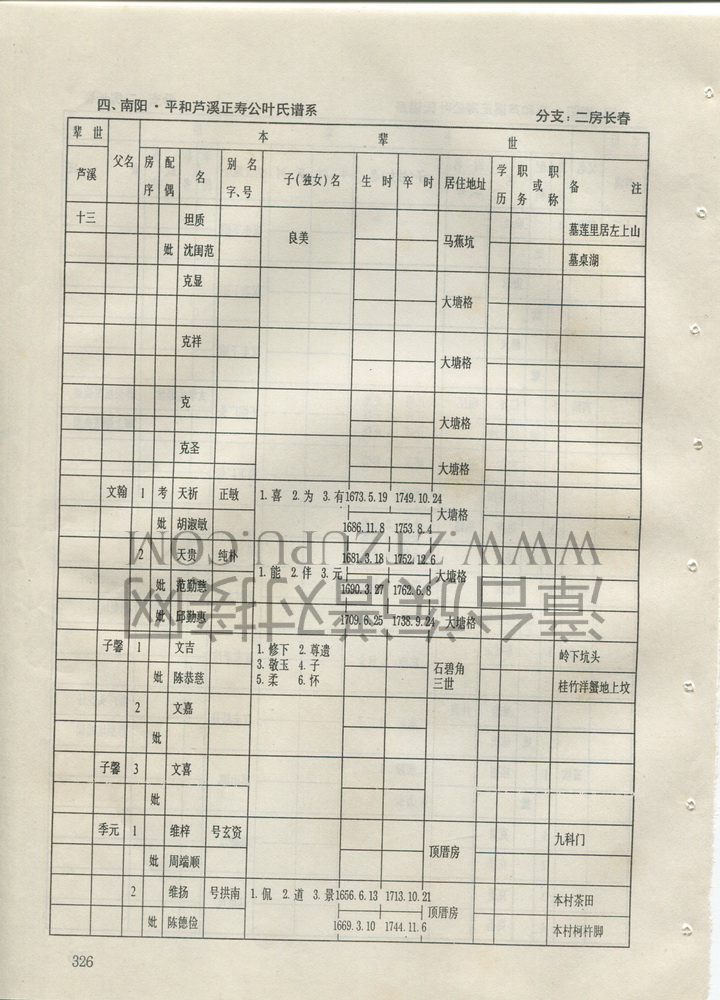 四、南阳·平和芦溪正寿公叶氏谱系 分支：二房长春
辈世 父名 本辈世
芦溪 房序 配偶 名 别名字、号 子（独女）名 生时 卒时 居住地址 学历 职务或职称 备注
十三 坦质 良美 马蕉坑 墓莲里居左上山
妣 沈闺范 墓桌湖
克显 大塘格
克祥 大塘格
克 大塘格
克圣 大塘格
文翰 1 考 天祈 正敏 1.喜 2.为 3.有 1673.5.19 1749.10.24 大塘格
妣 胡淑敏 1686.11.8 1753.8.4
2 天贵 纯朴 1.能 2.伴 3.元 1681.3.18 1752.12.6 大塘格
妣 范勤慈 1690.3.27 1762.6.8
妣 邱勤惠 1709.6.25 1738.9.24 大塘格
子馨 1 文吉 1.修下 2.尊遗 3.敬玉 4.子 5.柔 6.怀 石碧角三世 岭下坑头
妣 陈恭慈 桂竹洋蟹地上坟
2 文嘉
妣
子馨 3 文喜
妣
季元 1 维梓 号玄资 顶厝房 九科门
妣 周端顺
2 维扬 号拱南 1.侃 2.道 3.景 1656.6.13 1713.10.21 顶厝房 本村茶田
妣 陈德俭 1669.3.10 1744.11.6 本村柯杵脚
326
WWW.ZTZUPU.COM
漳台族谱对接网